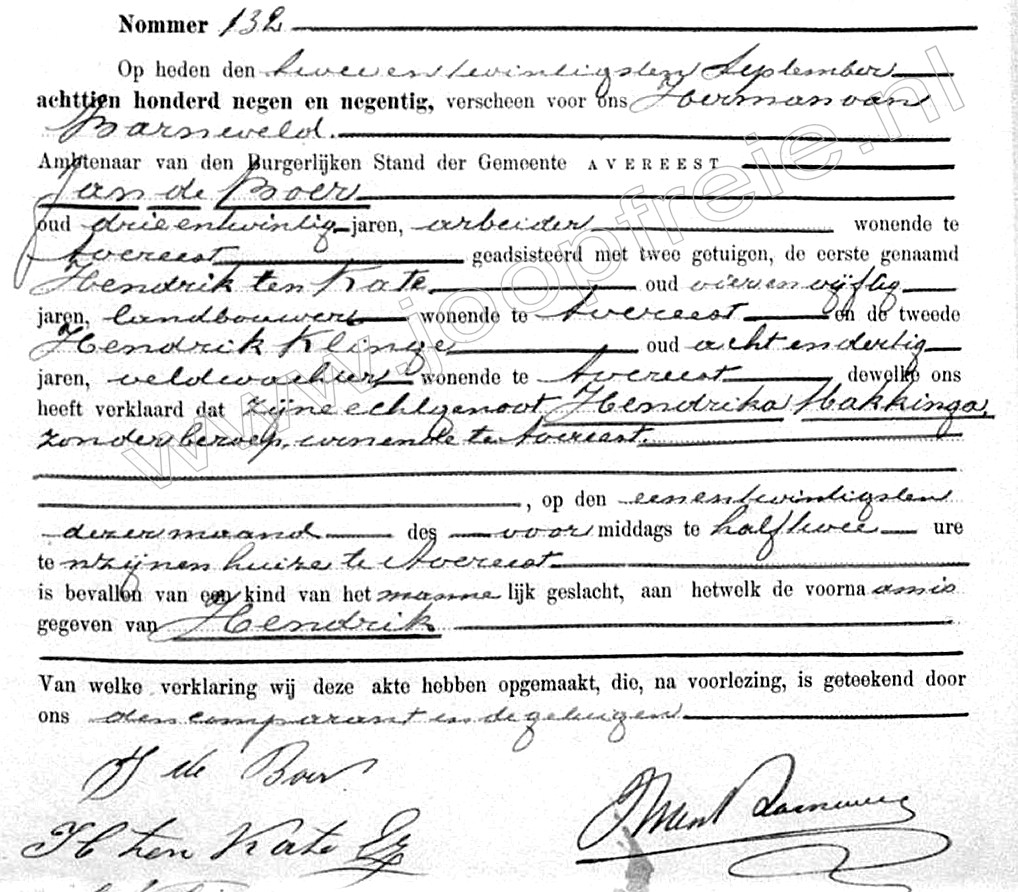 Nommer 132
Op heden den twee en twintigsten September
achttien honderd negen en negentig, verscheen voor ons Herman van
Barneveld.
Ambtenaar van den Burgerlijken Stand der Gemeente AVEREEST
Jan de Boer
oud drie en twintig jaren, arbeider wonende te
Avereest geadsisteerd met twee getuigen, de eerste genaamd
Hendrik ten Kate oud vier en vijftig
jaren, landbouwer wonende te Avereest en de tweede
Hendrik Klinge oud acht en dertig
jaren, veldwachter wonende te Avereest dewelke ons
heeft verklaard dat zijne echtgenoot, Hendrika Makkinga,
zonder beroep, wonende te Avereest.
, op den een en twintigsten
dezer maand des voor middags te half twee ure
te zijnen huize te Avereest
is bevallen van een kind van het manne lijk geslacht, aan hetwelk de voorna am is
gegeven van Hendrik
Van welke verklaring wij deze akte hebben opgemaakt, die, na voorlezing, is geteekend door
ons den comparant en de getuigen
J de Boer
H ten Kate
www.joopfreie.nl